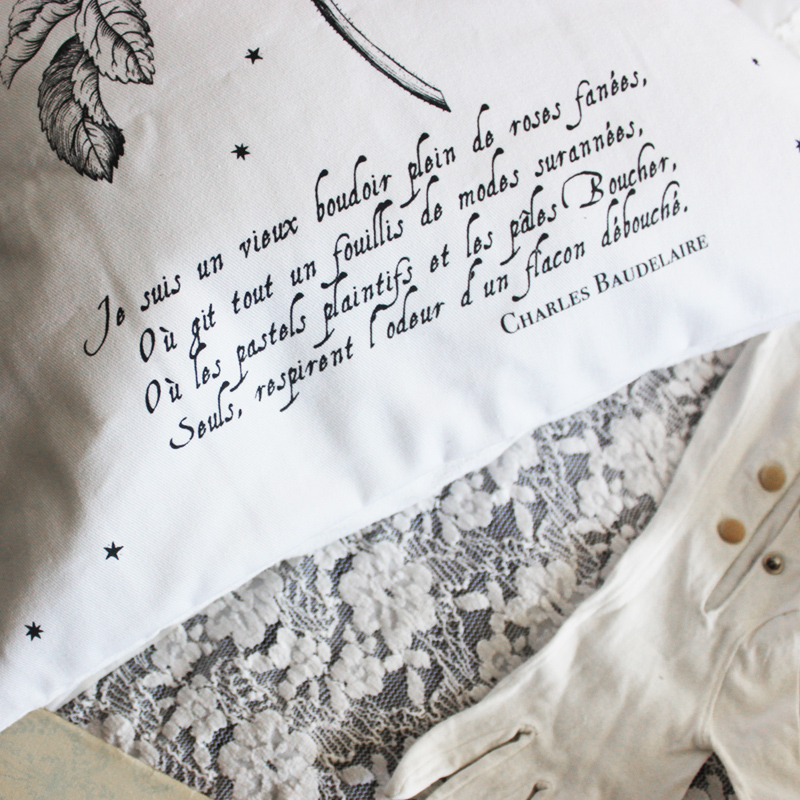 Je suis un vieux boudoir plein de roses fanées,
Où gît tout un fouillis de modes surannées,
Où les pastels plaintifs et les pâles Boucher,
Seuls, respirent l'odeur d'un flacon débouché.
CHARLES BAUDELAIRE